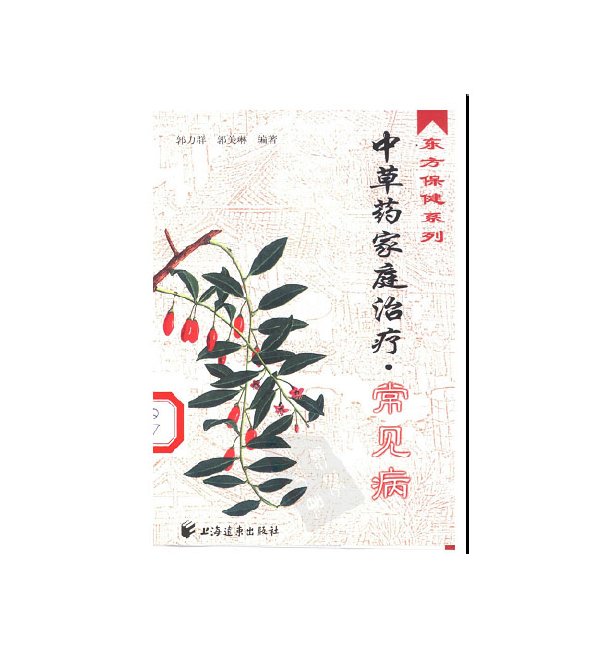 东方保健系列
中草药家庭治疗·常见病
郭力群 郭美琳 编著
上海远东出版社